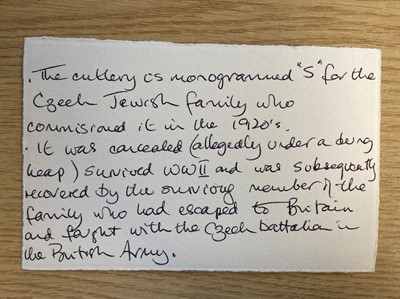 . The cutlery is monogrammed "S" for the
Czech Jewish family who
commisioned it in the 1920's.
. It was cancealed (allegedly under a dung
heap) survived WWII and was subsequently
recovered by the surviving member of the
family who had escaped to Britain
and fought with the Czech battalian in
the British Army.